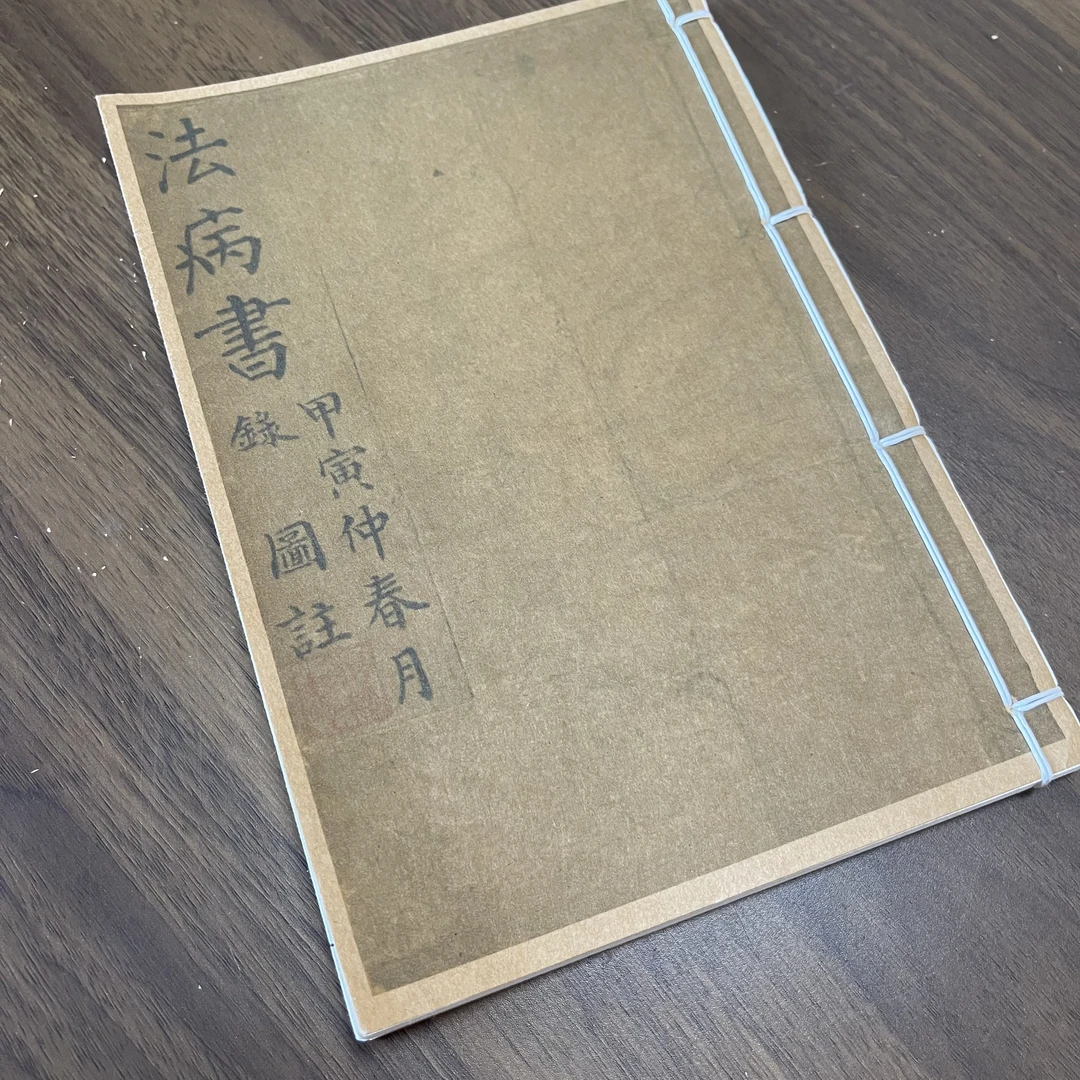 甲寅仲春月
法病書錄 圖註